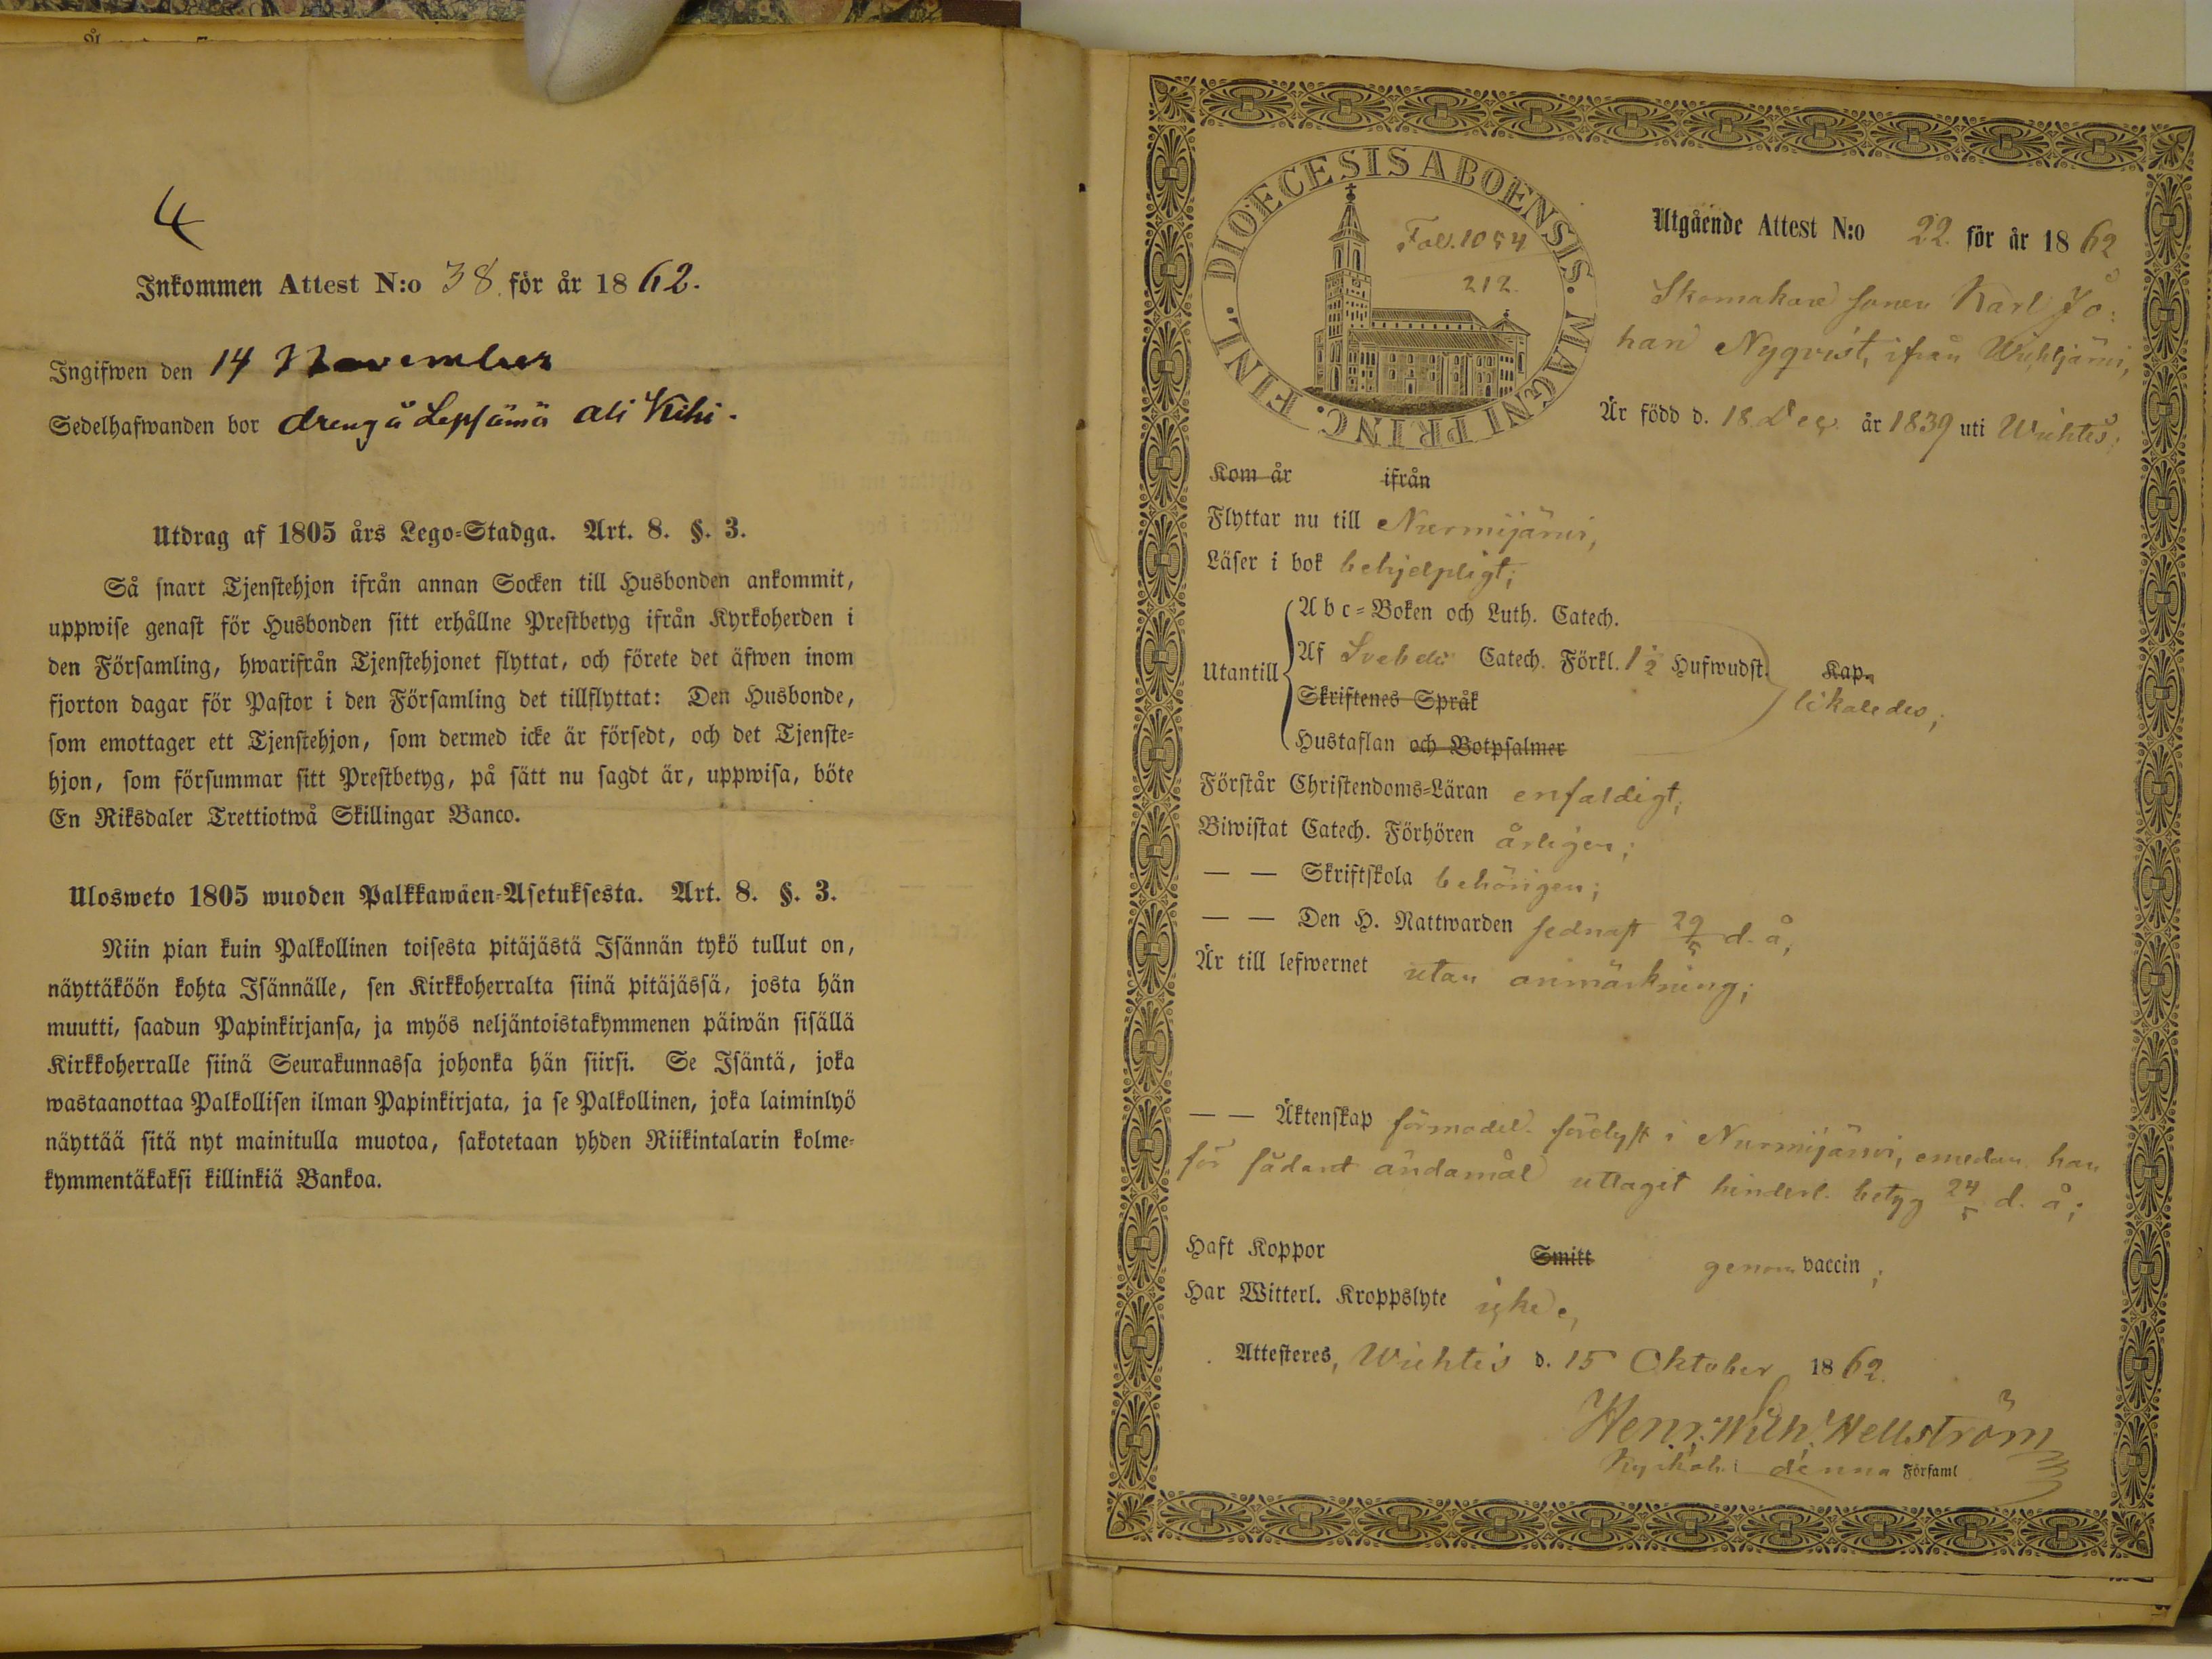 4
Inkommen Attest N:o 38. för år 1862.
Ingifwen den 14 November
Sedelhafwanden bor dreng å Lepsämä ali Kihi.
Utdrag af 1805 års Lego-Stadga. Art. 8. §. 3.
Så snart Tjenstehjon ifrån annan Socken till Husbonden ankommit,
uppwise genast för Husbonden sitt erhållne Prestbetyg ifrån Kyrkoherden i
den Församling, hwarifrån Tjenstehjonet flyttat, och förete det äfwen inom
fjorton dagar för Pastor i den Församling det tillflyttat: Den Husbonde,
som emottager ett Tjenstehjon, som dermed icke är försedt, och det Tjenste-
hjon, som försummar sitt Prestbetyg, på sätt nu sagdt är, uppwisa, böte
En Riksdaler Trettiotwå Skillingar Banco.
Ulosweto 1805 wuoden Palkkawäen-Asetuksesta. Art. 8. §. 3.
Niin pian kuin Palkollinen toisesta pitäjästä Isännän tykö tullut on,
näyttäköön kohta Isännälle, sen Kirkkoherralta siinä pitäjässä, josta hän
muutti, saadun Papinkirjansa, ja myös neljäntoistakymmenen päiwän sisällä
Kirkkoherralle siinä Seurakunnassa johonka hän siirsi. Se Isäntä, joka
wastaanottaa Palkollisen ilman Papinkirjata, ja se Palkollinen, joka laiminlyö
näyttää sitä nyt mainitulla muotoa, sakotetaan yhden Riikintalarin kolme-
kymmentäkaksi killinkiä Bankoa.
DIOECESIS ABOENSIS. MAGNI PRINC. FINL.
Fol. 1054
212.
Utgående Attest N:o 22. för år 1862
Skomakare sonen Karl Jo:
han Nyqvist, ifrån Wichtjärvi,
Är född d. 18 Dec. år 1839 uti Wichtis;
Kom år ifrån
Flyttar nu till Nurmijärvi,
Läser i bok behjelpligt;
Utantill
Abc-Boken och Luth. Catech.
Af Svebelii Catech. Förkl. 1 1/2 Hufwudst.
Skriftenes Språk
Hustaflan och Botpsalmer
Kap.
likaledes;
Förstår Christendoms-Läran enfaldigt;
Biwistat Catech. Förhören årligen;
— — Skriftskola behörigen;
— — Den H. Nattwarden sednast 29/5 d. å,
Är till lefwernet utan anmärkning;
— — Äktenskap förmodel. förelyst i Nurmijärvi, emedan han
för sådant ändamål uttagit hinderl. betyg 24/5 d. å;
Haft Koppor Smitt genom vaccin;
Har Witterl. Kroppslyte icke,
Attesteres, Wichtis d. 15 Oktober 1862.
Henr. Wilh. Hellström
Kyrkoh. i denna Församl